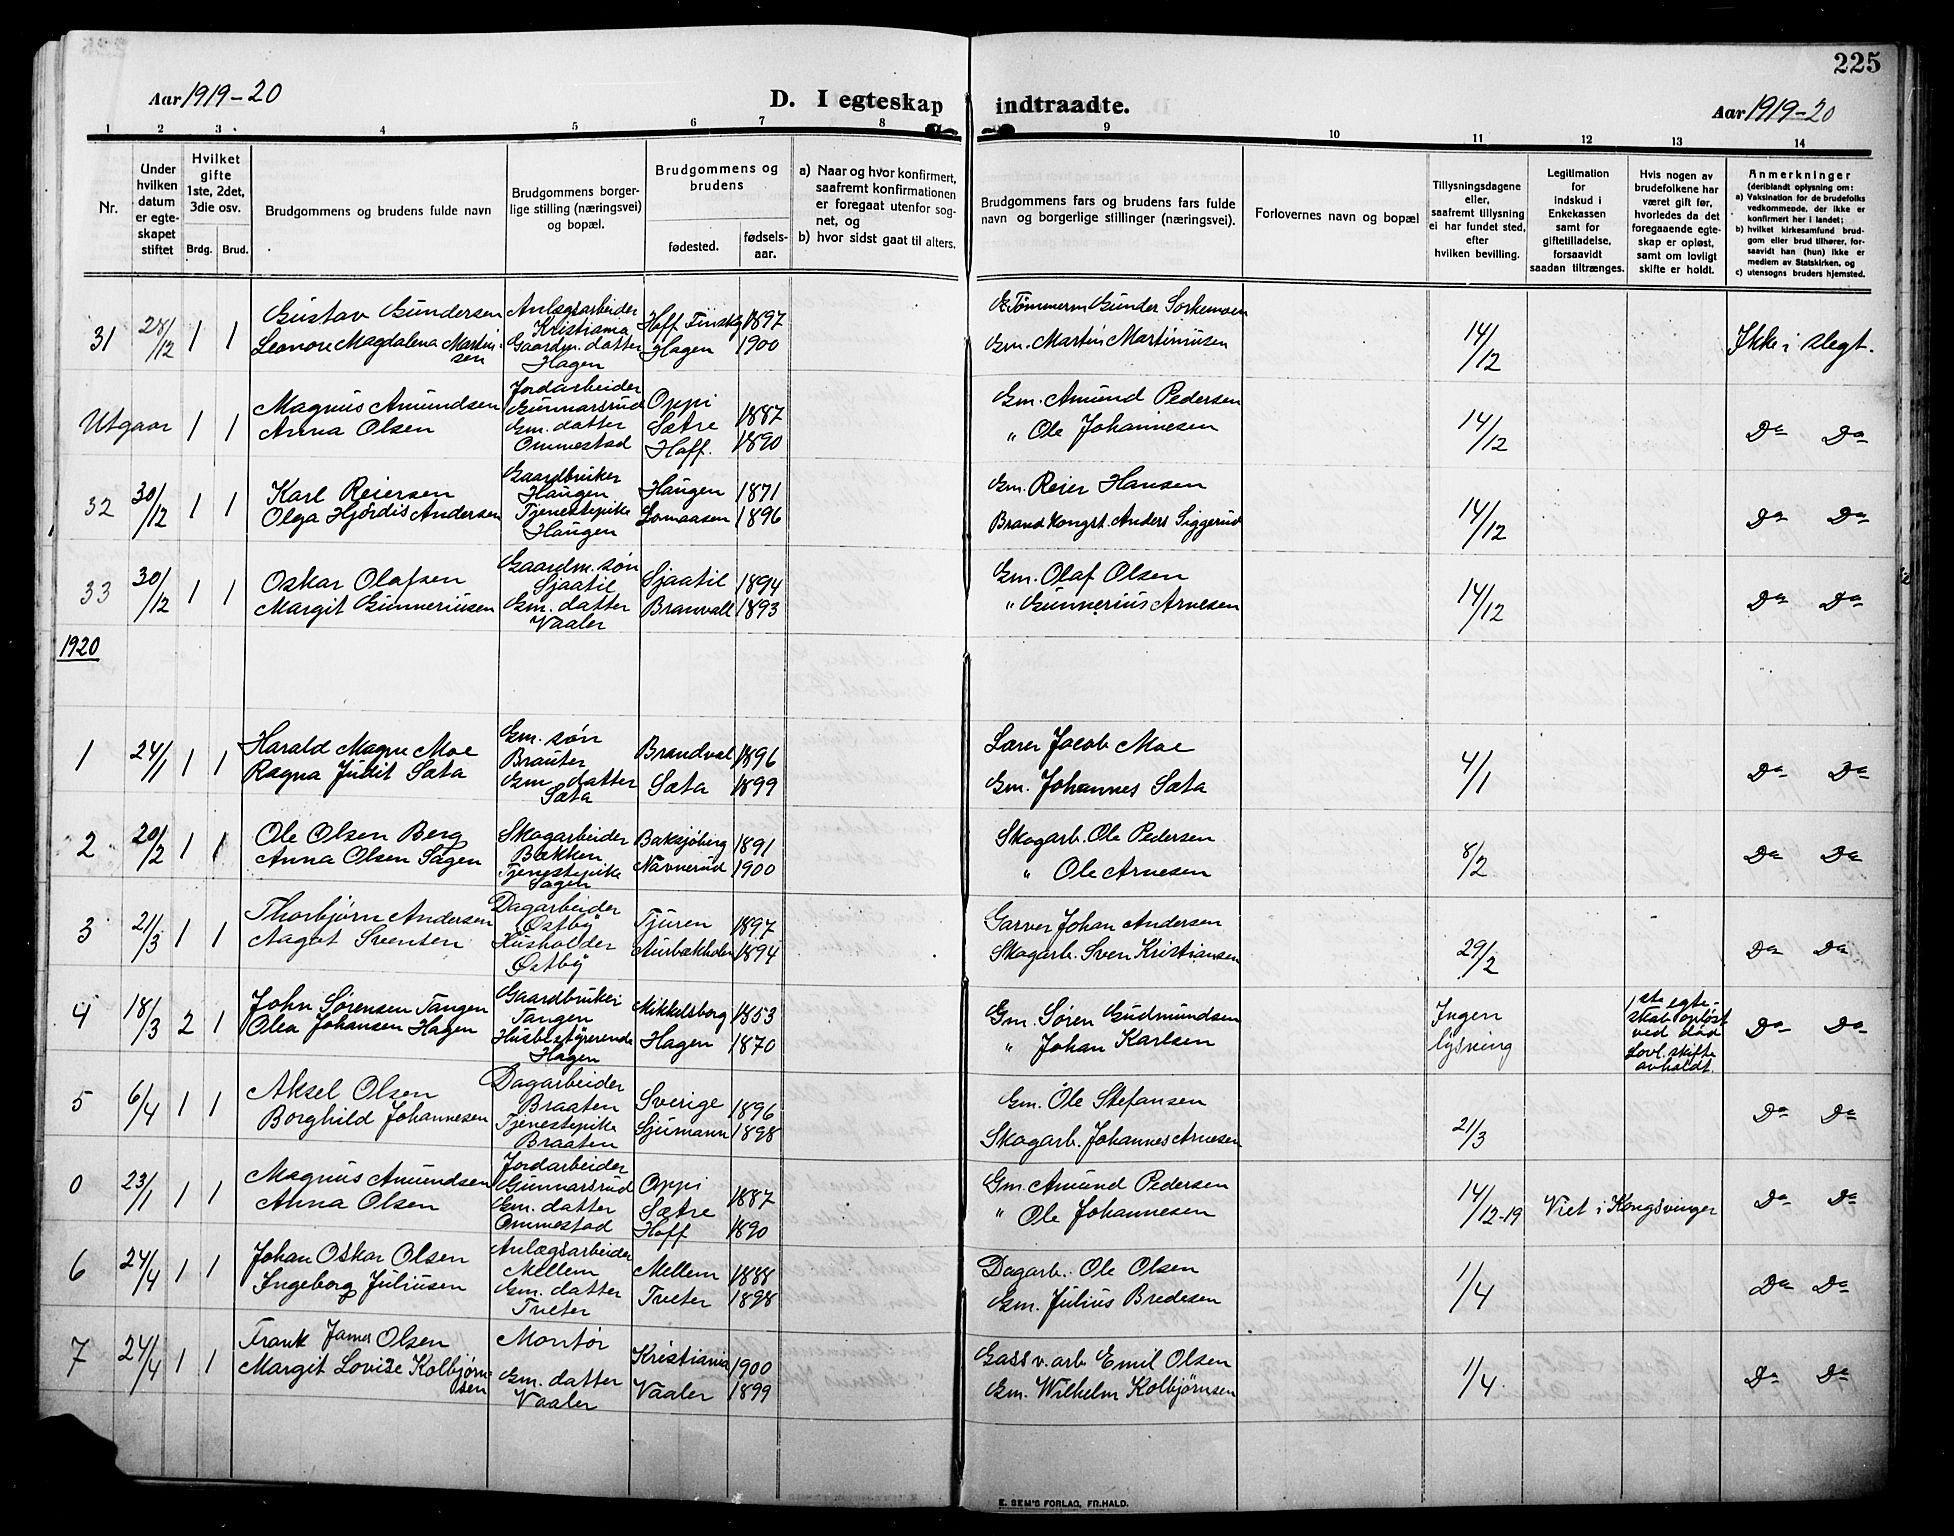 225
Aar 1919-20
D. I egteskap indtraadte.
Aar 1919-20
1 2 3 4 5 6 7 8 9 10 11 12 13 14
Nr.
Under hvilken datum er egteskapet stiftet
Hvilket gifte 1ste, 2det, 3die osv.
Brdg. Brud.
Brudgommens og brudens fulde navn
Brudgommens borgerlige stilling (næringsvei) og bopæl.
Brudgommens og brudens
fødested. fødselsaar.
a) Naar og hvor konfirmert, saafremt konfirmationen er foregaat utenfor sognet, og
b) hvor sidst gaat til alters.
Brudgommens fars og brudens fars fulde navn og borgerlige stillinger (næringsvei).
Forlovernes navn og bopæl
Tillysningsdagene eller, saafremt tillysning ei har fundet sted, efter hvilken bevilling.
Legitimation for indskud i Enkekassen samt for giftetilladelse, forsaavidt saadan tiltrænges.
Hvis nogen av brudefolkene har været gift før, hvorledes da det foregaaende egteskap er opløst, samt om lovligt skifte er holdt.
Anmerkninger
(deriblandt oplysning om:
a) Vaksination for de brudefolks vedkommende, der ikke er konfirmert her i landet;
b) hvilket kirkesamfund brudgom eller brud tilhører, forsaavidt han (hun) ikke er medlem av Statskirken, og
c) utensogns bruders hjemsted.
31 28/12 1 1 Gustav Gundersen Anlægsarbeider Kristiania Hoff Finskg 1897 G. Tømmerm Gunder Sorkemoen 14/12 Ikke i slegt.
Leonore Magdalena Martinsen Gaardm. datter Hagen Hagen 1900 Gm. Martin Martiniusen
Utgaar 1 1 Magnus Amundsen Jordarbeider Gunnarsrud Oppi Sætre 1887 Gm. Amund Pedersen 14/12 Do Do
Anna Olsen Gm. datter Ommestad Hoff. 1890 " Ole Johannesen
32 30/12 1 1 Karl Reiersen Gaardbruker Haugen Haugen 1871 Gm. Reier Hansen 14/12 Do Do
Olga Hjördis Andersen Tjenestepike Haugen Lomaasen 1896 Brandkongst. Anders Siggerud
33 30/12 1 1 Oskar Olafsen Gaardm. søn Sjaatil Sjaatil 1894 Gm. Olaf Olsen 14/12 Do Do
Margit Gunneriusen Gm. datter Vaaler Branvall 1893 " Gunnerius Arnesen
1920
1 24/1 1 1 Harald Magne Moe Gm. søn Brauter Brandval 1896 Lærer Jacob Moe 4/1 Do Do
Ragna Judit Sæta Gm. datter Sæta Sæta 1899 Gm. Johannes Sæta
2 20/2 1 1 Ole Olsen Berg Skogarbeider Bækken Baksjøberg 1891 Skogarb. Ole Pedersen 8/2 Do Do
Anna Olsen Sagen Tjenestepike Sagen Navnerud 1900 " Ole Arnesen
3 21/3 1 1 Thorbjørn Andersen Dagarbeider Østby Tjuren 1897 Garver Johan Andersen 29/2 Do Do
Aagot Sventen Husholder Østby Aurbækholen 1894 Skogarb. Sven Kristiansen
4 18/3 2 1 John Sørensen Tangen Gaardbruker Tangen Mikkelsborg 1853 Gm. Søren Gudmundsen Ingen lysning 1ste egteskab opløst ved død Lovl. skifte avholdt. Do Do
Olea Johansen Hagen Husbestyrerende Hagen Hagen 1870 " Johan Karlsen
5 6/4 1 1 Aksel Olsen Dagarbeider Braaten Sverige 1896 Gm. Ole Stefansen 21/3 Do Do
Borghild Johannesen Tjenestepike Braaten Sjumann 1898 Skogarb. Johannes Arnesen
0 23/1 1 1 Magnus Amundsen Jordarbeider Gunnarsrud Oppi Sætre 1887 Gm. Amund Pedersen 14/12-19 Viet i Kongsvinger Do Do
Anna Olsen Gm. datter Ommestad Hoff 1890 " Ole Johannesen
6 24/4 1 1 Johan Oskar Olsen Anlægsarbeider Mellem Mellem 1888 Dagarb. Ole Olsen 1/4 Do Do
Ingeborg Juliusen Gm. datter Tveter Tveter 1898 Gm. Julius Bredesen
7 24/4 1 1 Frank James Olsen Montør Kristiania 1900 Gassv. arb Emil Olsen 1/4 Do Do
Margit Lovise Kolbjørnsen Gm. datter Vaaler Vaaler 1899 Gm. Wilhelm Kolbjørnsen
E. SEM'S FORLAG, FR.HALD.